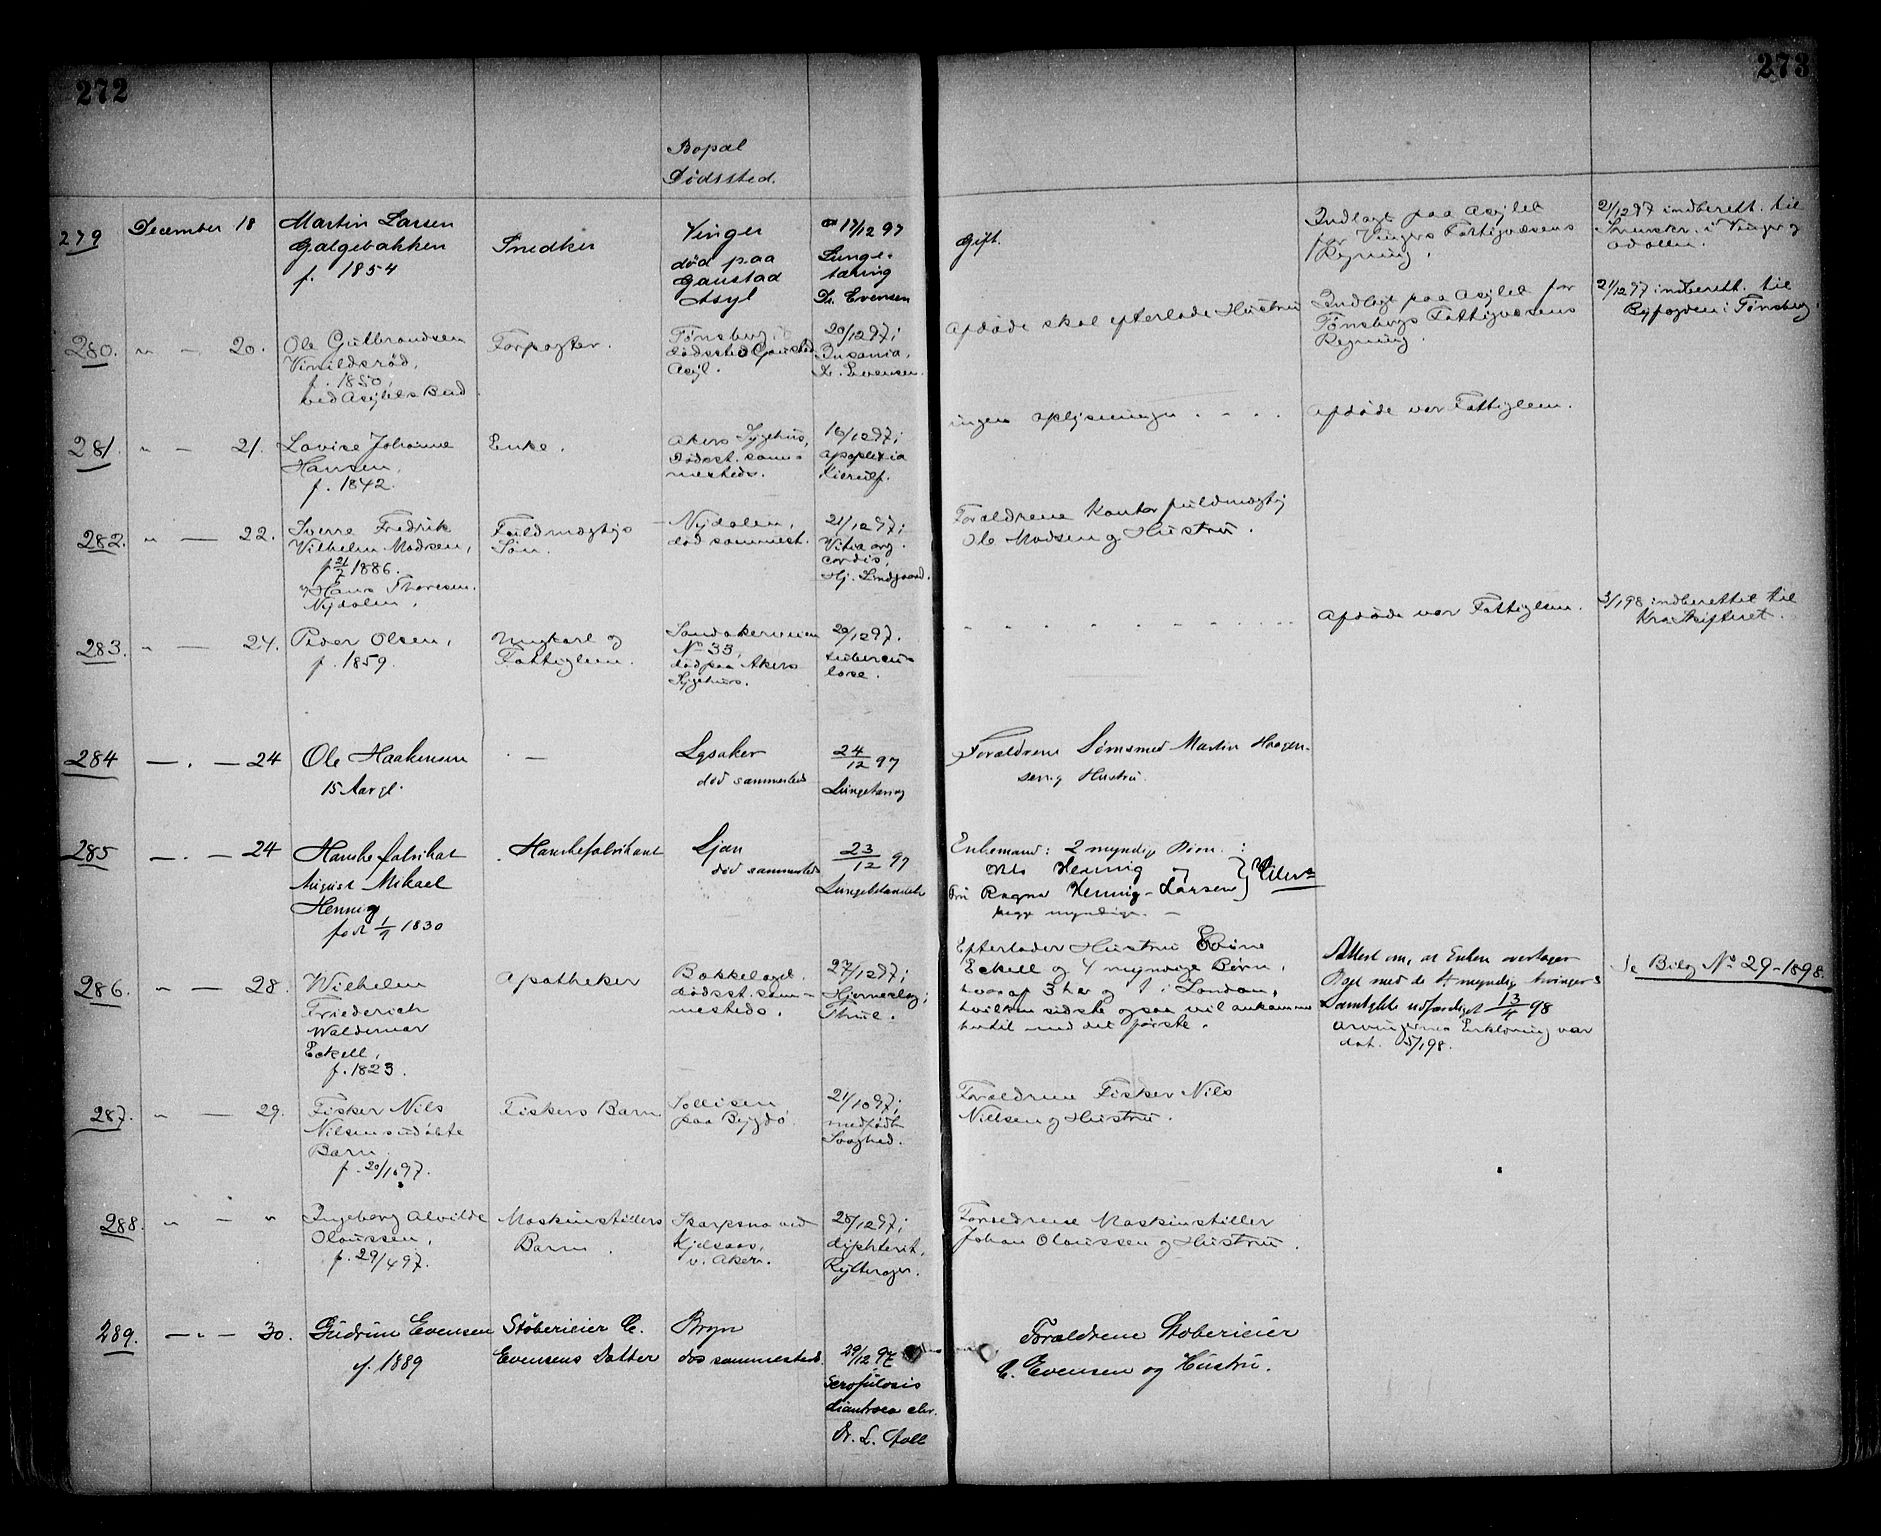 272
273
Bopæl
Dødssted.
279
December 18
Martin Larsen
Galgebakken
f. 1854
Snedker
Vinger
død paa
Gaustad
Asyl
17/12 97
Lunge-
tæring
Dr. Evensen
Gift.
Indlagt paa Asylet
for Vingers Fattigvæsens
Regning.
21/12 97 indberett. til
Sorenskr. i Vinger og
Odalen.
280.
" — 20.
Ole Gulbrandsen
Virnildsrød,
f. 1850,
ved Asylets Bud.
Forpagter.
Tønsberg
dødssted Gaustad
Asyl.
20/12 97;
Insania.
Dr. Evensen.
Afdøde skal efterlade Hustru
Indlagt paa Asylet for
Tønsbergs Fattigvæsens
Regning.
21/12 97 indberett. til
Byfogden i Tønsberg.
281.
" — 21.
Lovise Johanne
Hansen,
f. 1842.
Enke.
Akers Sygehus,
dødsst. sam-
mesteds.
16/12 97;
apoplexia
Kierulf.
ingen oplysninger . - . .
Afdøde var Fattiglem.
282.
" — 22.
Sverre Fredrik
Vilhelm Madsen,
f. 21/2 1886.
Hans Thoresen.
Nydalen,
Fuldmægtigs
Søn.
Nydalen,
død sammest.
21/12 97;
Vitia org.
cordis,
Hj. Lindgaard.
Forældrene Kontorfuldmægtig
Ole Madsen og Hustru.
283.
" — 24.
Peder Olsen,
f. 1859.
Ungkarl og
Fattiglem.
Sandakerveien
No 33,
død paa Akers
Sygehus.
20/12 97.
tubercu-
lose.
Afdøde var Fattiglem.
3/1 98 indberettet til
Kra Skifteret.
284
— . — 24
Ole Haakensen
15 Aar gl.
—
Lysaker
død sammesteds
24/12 97
Lungetæring
Forældrene Sømsmed Martin Haagen-
sen og Hustru.
285
— . — 24
Hanskefabrikat
August Mikael
Hennig
født 1/9 1830
Hanskefabrikant
Ljan
død sammesteds
23/12 97
Lungebetændelse
Enkemand: 2 myndige Børn :
Nils Hennig og
Fru Ragna Hennig-Larsen
begge myndige. —
286.
" — 28.
Wilhelm
Friederich
Waldemar
Eckell,
f. 1823.
Apotheker
Bækkelaget.
dødsst. sam-
mesteds.
27/12 97;
Hjerneslag;
Thue.
Efterlader Hustru
Eckell og 4 myndige Børn,
hvoraf 3 her og 1 i London,
hvilken sidste ogsaa vil ankomme
hertil med det første.
Attest om, at Enken overtager
Boet med de 4 myndig Arvingers
Samtykke udfærdiget 13/4 98
Arvingernes Erklæring var
dat. 5/1 98.
Se Bilag No 29-1898
287.
" — 29.
Fisker Nils
Nilsens udøbte
Barn.
f. 20/10 97.
Fiskers Barn
Sollisen
paa Bygdø.
21/10 97;
medfødt
Svaghed.
Forældrene Fisker Nils
Nielsen og Hustru.
288.
" — "
Ingeborg Alvilde
Olaussen,
f. 29/4 97.
Maskinstillers
Barn.
Skarpsno ved
Kjelsaas,
v. Aker.
28/12 97;
diphterit,
Rytterager.
Forældrene Maskinstiller
Johan Olaussen og Hustru.
289.
— " — 30.
Gudrun Evensen
f. 1889
Støberieier C.
Evensens Datter
Bryn
død sammesteds.
29/12 97
Scrofulosis
diarrhoea chr.
Dr. L. Quall
Forældrene Støberieier
C. Evensen og Hustru.